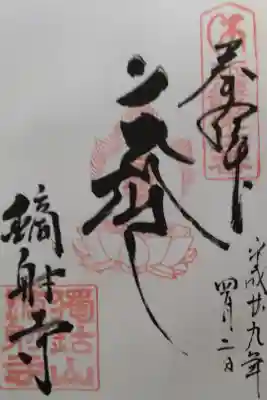 奉拝
平成廿九年
四月二日
鏑射寺
獨鈷山
鏑射寺